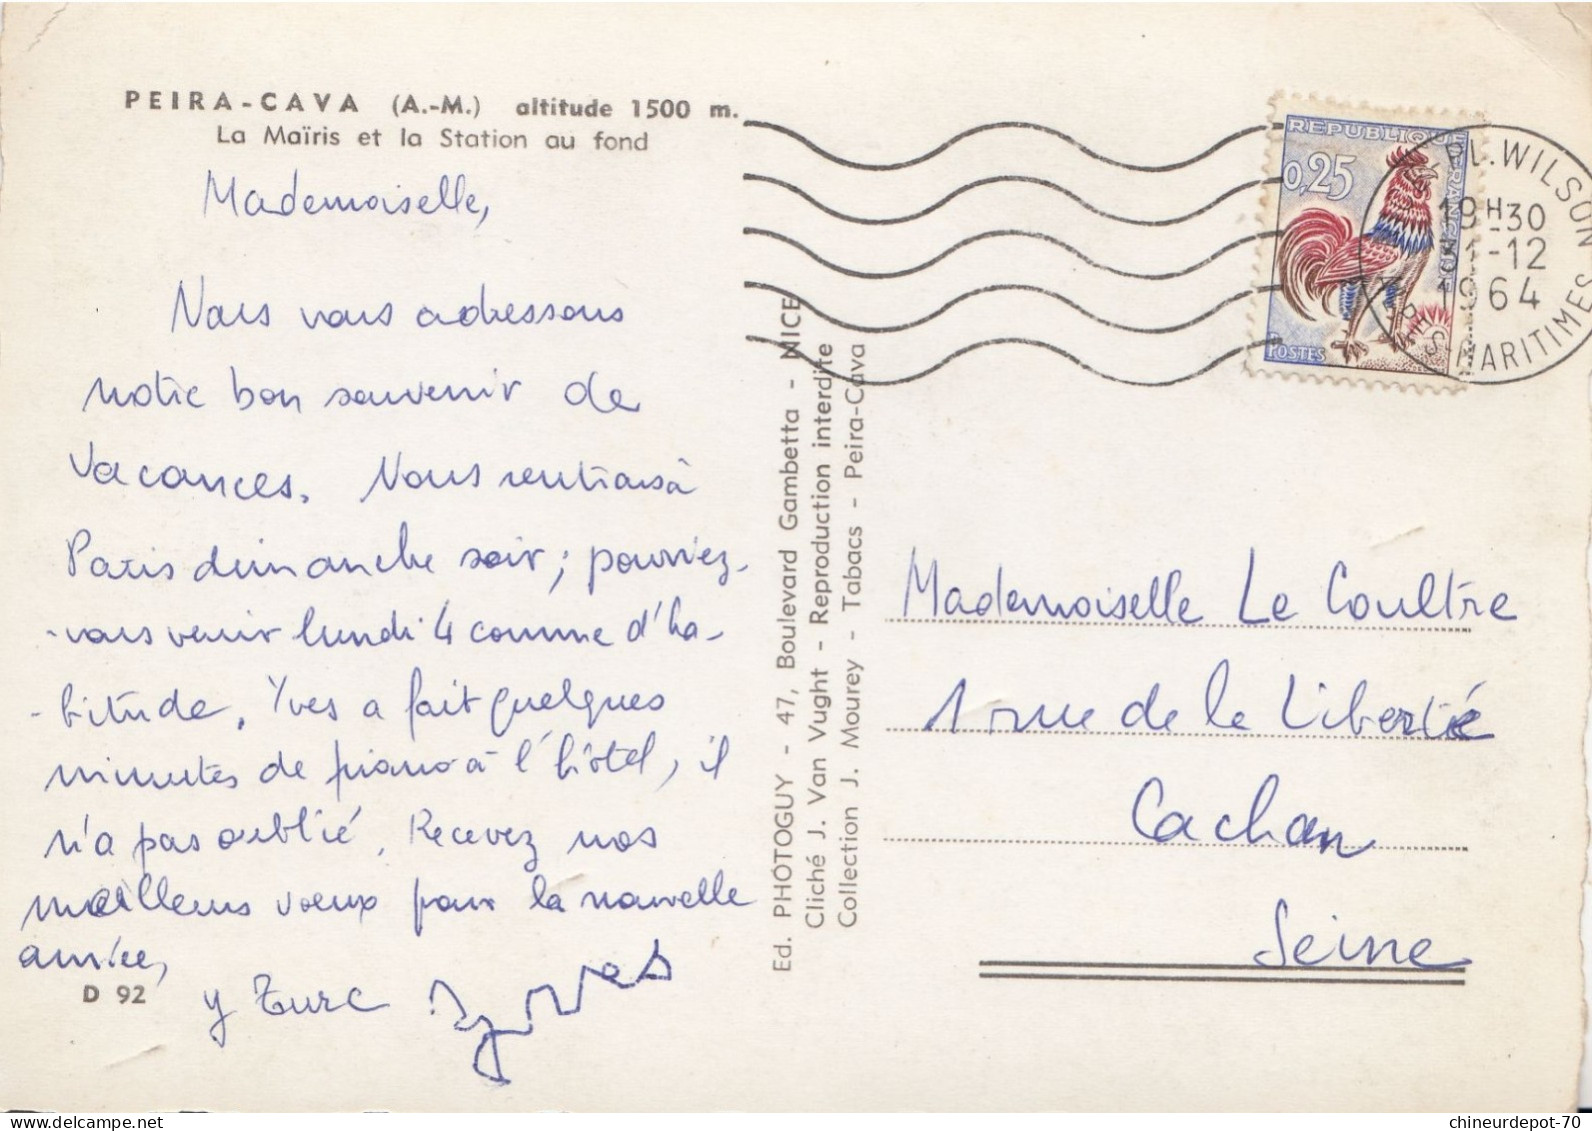 PEIRA-CAVA (A.-M.) altitude 1500 m.
La Maïris et la Station au fond
Mademoiselle,
Nous vous adressons
notre bon souvenir de
vacances. Nous rentrons à
Paris dimanche soir; pourriez-
-vous venir lundi 4 comme d'ha-
-bitude. Yves a fait quelques
minutes de piano à l'hôtel, il
n'a pas oublié. Recevez nos
meilleurs voeux pour la nouvelle
année,
D 92
y Turc
Yves
Ed. PHOTOGUY - 47, Boulevard Gambetta - NICE
Cliché J. Van Vught - Reproduction interdite
Collection J. Mourey - Tabacs - Peira-Cava
REPUBLIQUE FRANCAISE
0,25
POSTES
PL. WILSON
19H30
31-12
1964
ALPES-MARITIMES
Mademoiselle Le Coultre
1 rue de la Liberté
Cachan
Seine
chineurdepot-70